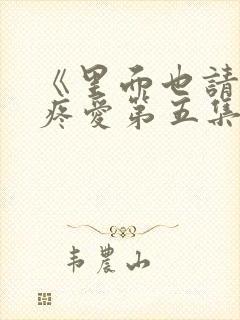 《里面也請
疼愛第五集
韦農山